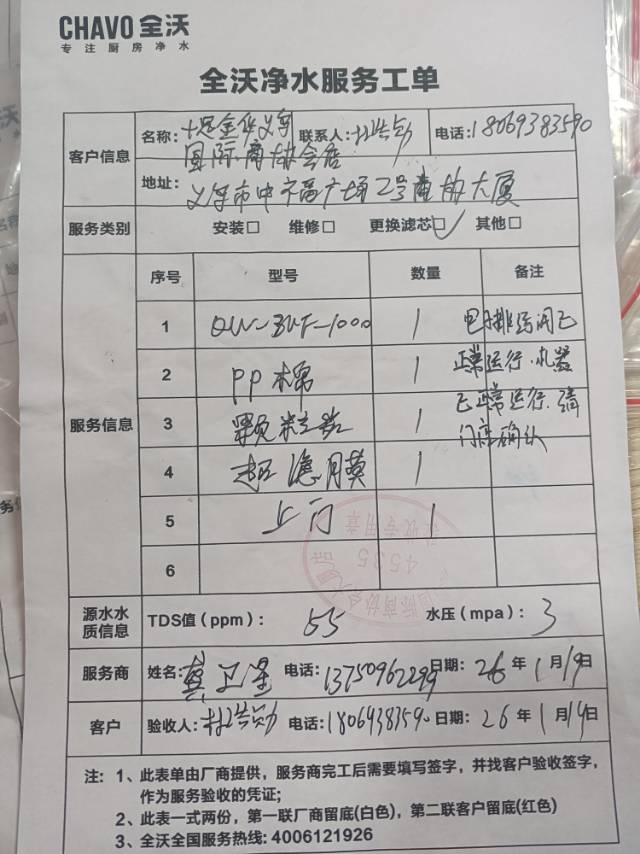 CHAVO 全沃
专注厨房净水
全沃净水服务工单
客户信息
名称：十足金华义乌 联系人： 电话：18069383590
国际商协会店
地址：义乌市中福广场2号商协大厦
服务类别 安装□ 维修□ 更换滤芯□✓ 其他□
服务信息 序号 型号 数量 备注
1 QW-BUF-1000 1 电排污阀已
2 PP棉 1 正常运行.机器
3 颗粒炭 1 已正常运行.请
4 超滤膜 1 门店确认
5 上门 1
6
验收专用章
4535
源水水质信息 TDS值（ppm）： 55 水压（mpa）： 3
服务商 姓名：蔡卫星 电话：13750962299 日期：26 年 1 月 19 日
客户 验收人： 电话：18069383590 日期：26 年 1 月 19 日
注：1、此表单由厂商提供，服务商完工后需要填写签字，并找客户验收签字，
作为服务验收的凭证;
2、此表一式两份，第一联厂商留底(白色)，第二联客户留底(红色)
3、全沃全国服务热线: 4006121926